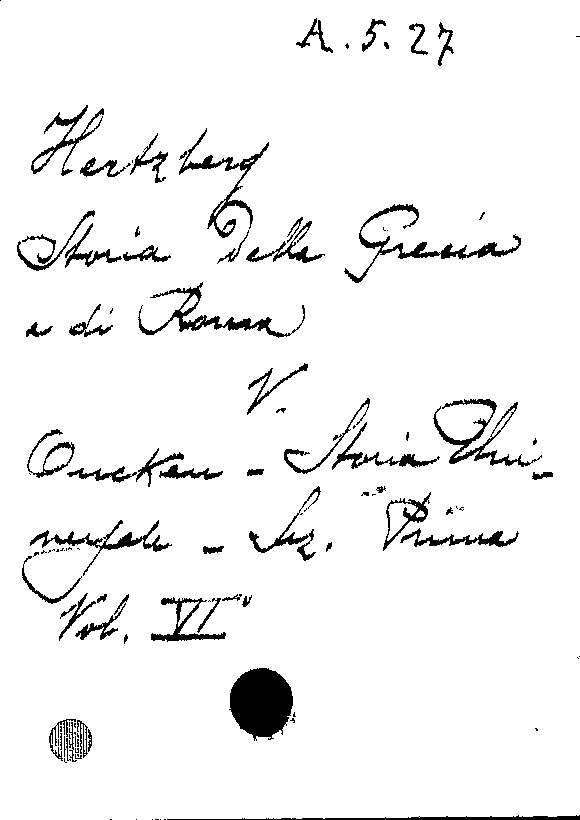 A. 5. 27
Hertzberg
Storia Della Grecia
e di Roma
V.
Oncken - Storia Uni-
versale - Sez. Prima
Vol. VI